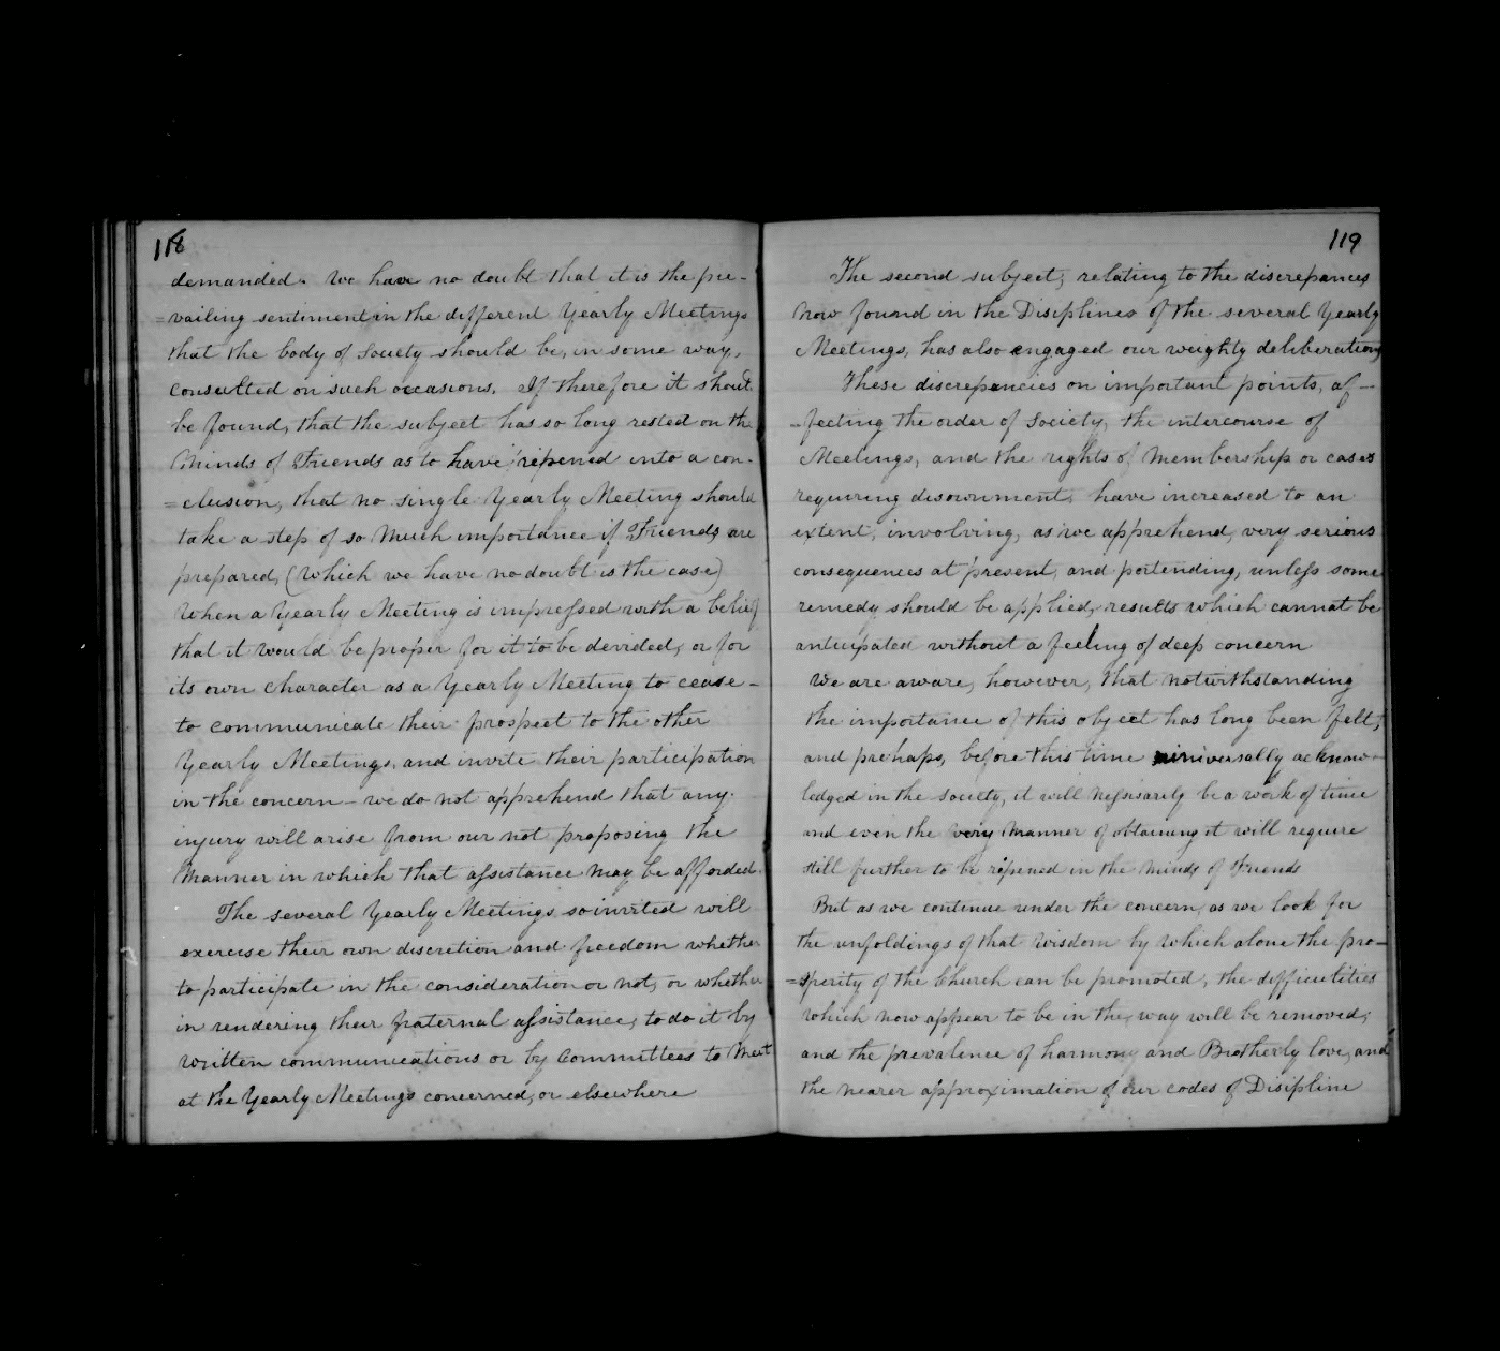 118
demanded. We have no doubt that it is the pre-
=vailing sentiment in the different Yearly Meetings
that the body of Society should be, in some way,
consulted on such occasions. If therefore it should
be found, that the subject has so long rested on the
Minds of Friends as to have ripened into a con-
=clusion, that no single Yearly Meeting should
take a step of so Much importance if Friends are
prepared, (Which we have no doubt is the case)
When a Yearly Meeting is impressed with a belief
that it would be proper for it to be devided, or for
its own character as a Yearly Meeting to cease -
to communicate their prospect to the other
Yearly Meetings, and invite their participation
in the concern - we do not apprehend that any
injury will arise from our not proposing the
Manner in which that assistance may be afforded.
The several Yearly Meetings so invited will
exercise their own discretion and freedom whether
to participate in the consideration or not, or whether
in rendering their fraternal assistance, to do it by
written communications or by Committees to Meet
at the Yearly Meetings concerned, or elsewhere
119
The second subject, relating to the discrepances
Now found in the Disciplines of the several Yearly
Meetings, has also engaged our weighty deliberations
These discrepancies on important points, af-
-fecting the order of Society, the intercourse of
Meetings, and the rights of Membership or cases
requiring disownment, have increased to an
extent, involving, as we apprehend, very serious
consequences at present, and portending, unless some
remedy should be applied, results which cannot be
anticipated without a feeling of deep concern
We are aware, however, that notwithstanding
the importance of this object has long been felt,
and prehaps, before this time universally acknow-
ledged in the society, it will nessisarily be a work of time
and even the very Manner of obtaining it will require
still further to be ripened in the Minds of Friends
But as we continue under the concern, as we look for
the unfoldings of that Wisdom by Which alone the pro-
=sperity of the Church can be promoted, the difficulities
which now appear to be in the way will be removed,
and the prevalence of harmony and Brotherly love, and
the nearer approximation of our codes of Disipline